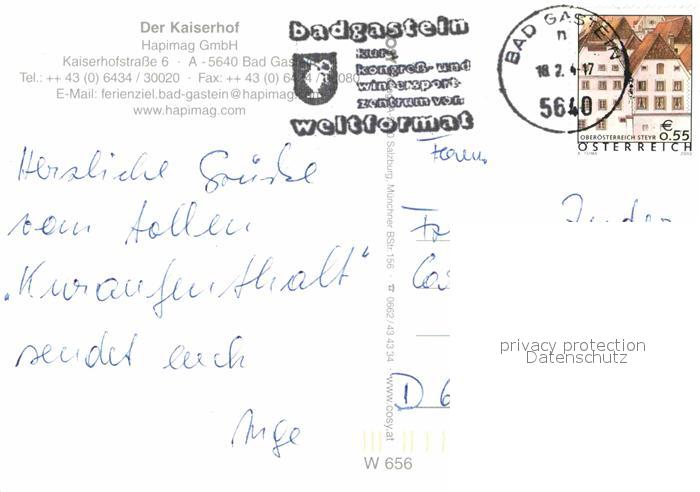 Der Kaiserhof
Hapimag GmbH
Kaiserhofstraße 6 · A - 5640 Bad Gas
Tel.: ++ 43 (0) 6434 / 30020 · Fax: ++43 (0) 6 080
E-Mail: ferienziel.bad-gastein@hapimag.
www.hapimag.com
badgastein
kur-
kongreß- und
wintersport-
zentrum von
weltformat
BAD GASTEIN
n
18.2. 4-17
5640
OBERÖSTERREICH STEYR
€ 0.55
ÖSTERREICH
Herzliche Grüße
vom tollen
„Kuraufenthalt"
sendet euch
Inge
Salzburg, Münchner BStr. 156 · ☎ 0662/43 43 34 · www.cosy.at
Fam.
D 6
privacy protection
Datenschutz
W 656